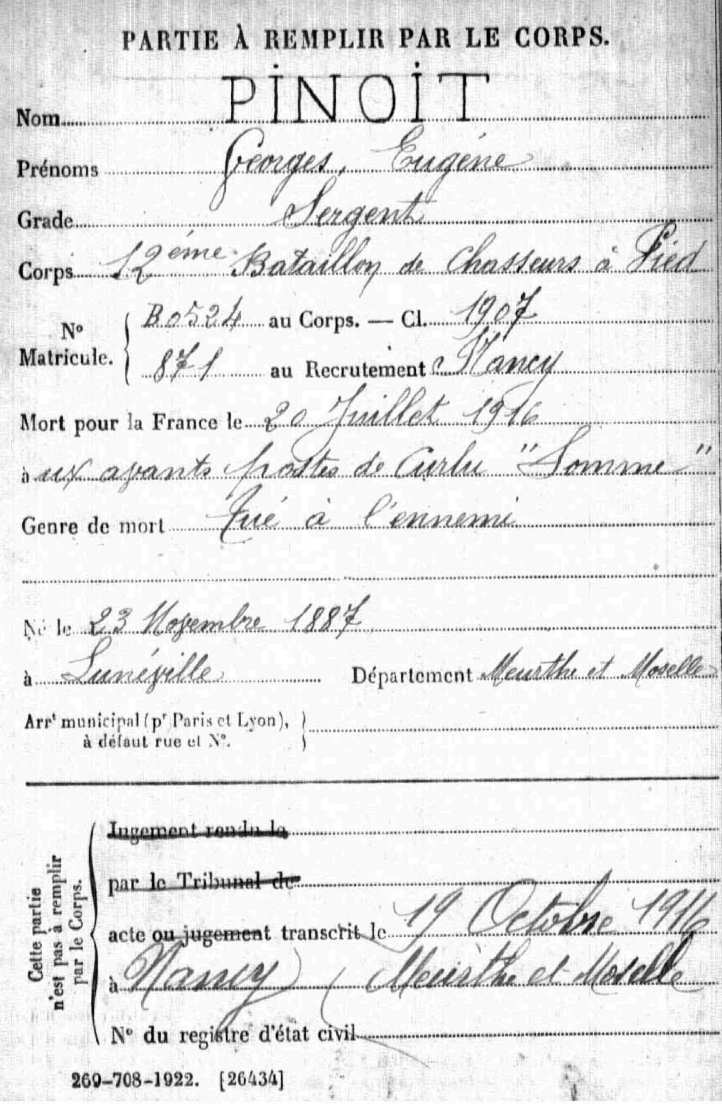 PARTIE À REMPLIR PAR LE CORPS.
Nom PINOIT
Prénoms Georges, Eugène
Grade Sergent
Corps 12ème Bataillon de Chasseurs à Pied
N° Matricule. B0524 au Corps. — Cl. 1907
871 au Recrutement Nancy
Mort pour la France le 20 Juillet 1916
à ux avants postes de Curlu "Somme"
Genre de mort Tué à l'ennemi
Né le 23 Novembre 1887
à Lunéville Département Meurthe et Moselle
Arrt municipal (pr Paris et Lyon),
à défaut rue et N°.
Cette partie n'est pas à remplir par le Corps.
Jugement rendu le
par le Tribunal de
acte ou jugement transcrit le 19 Octobre 1916
à Nancy (Meurthe et Moselle
N° du registre d'état civil
269-708-1922. [26434]